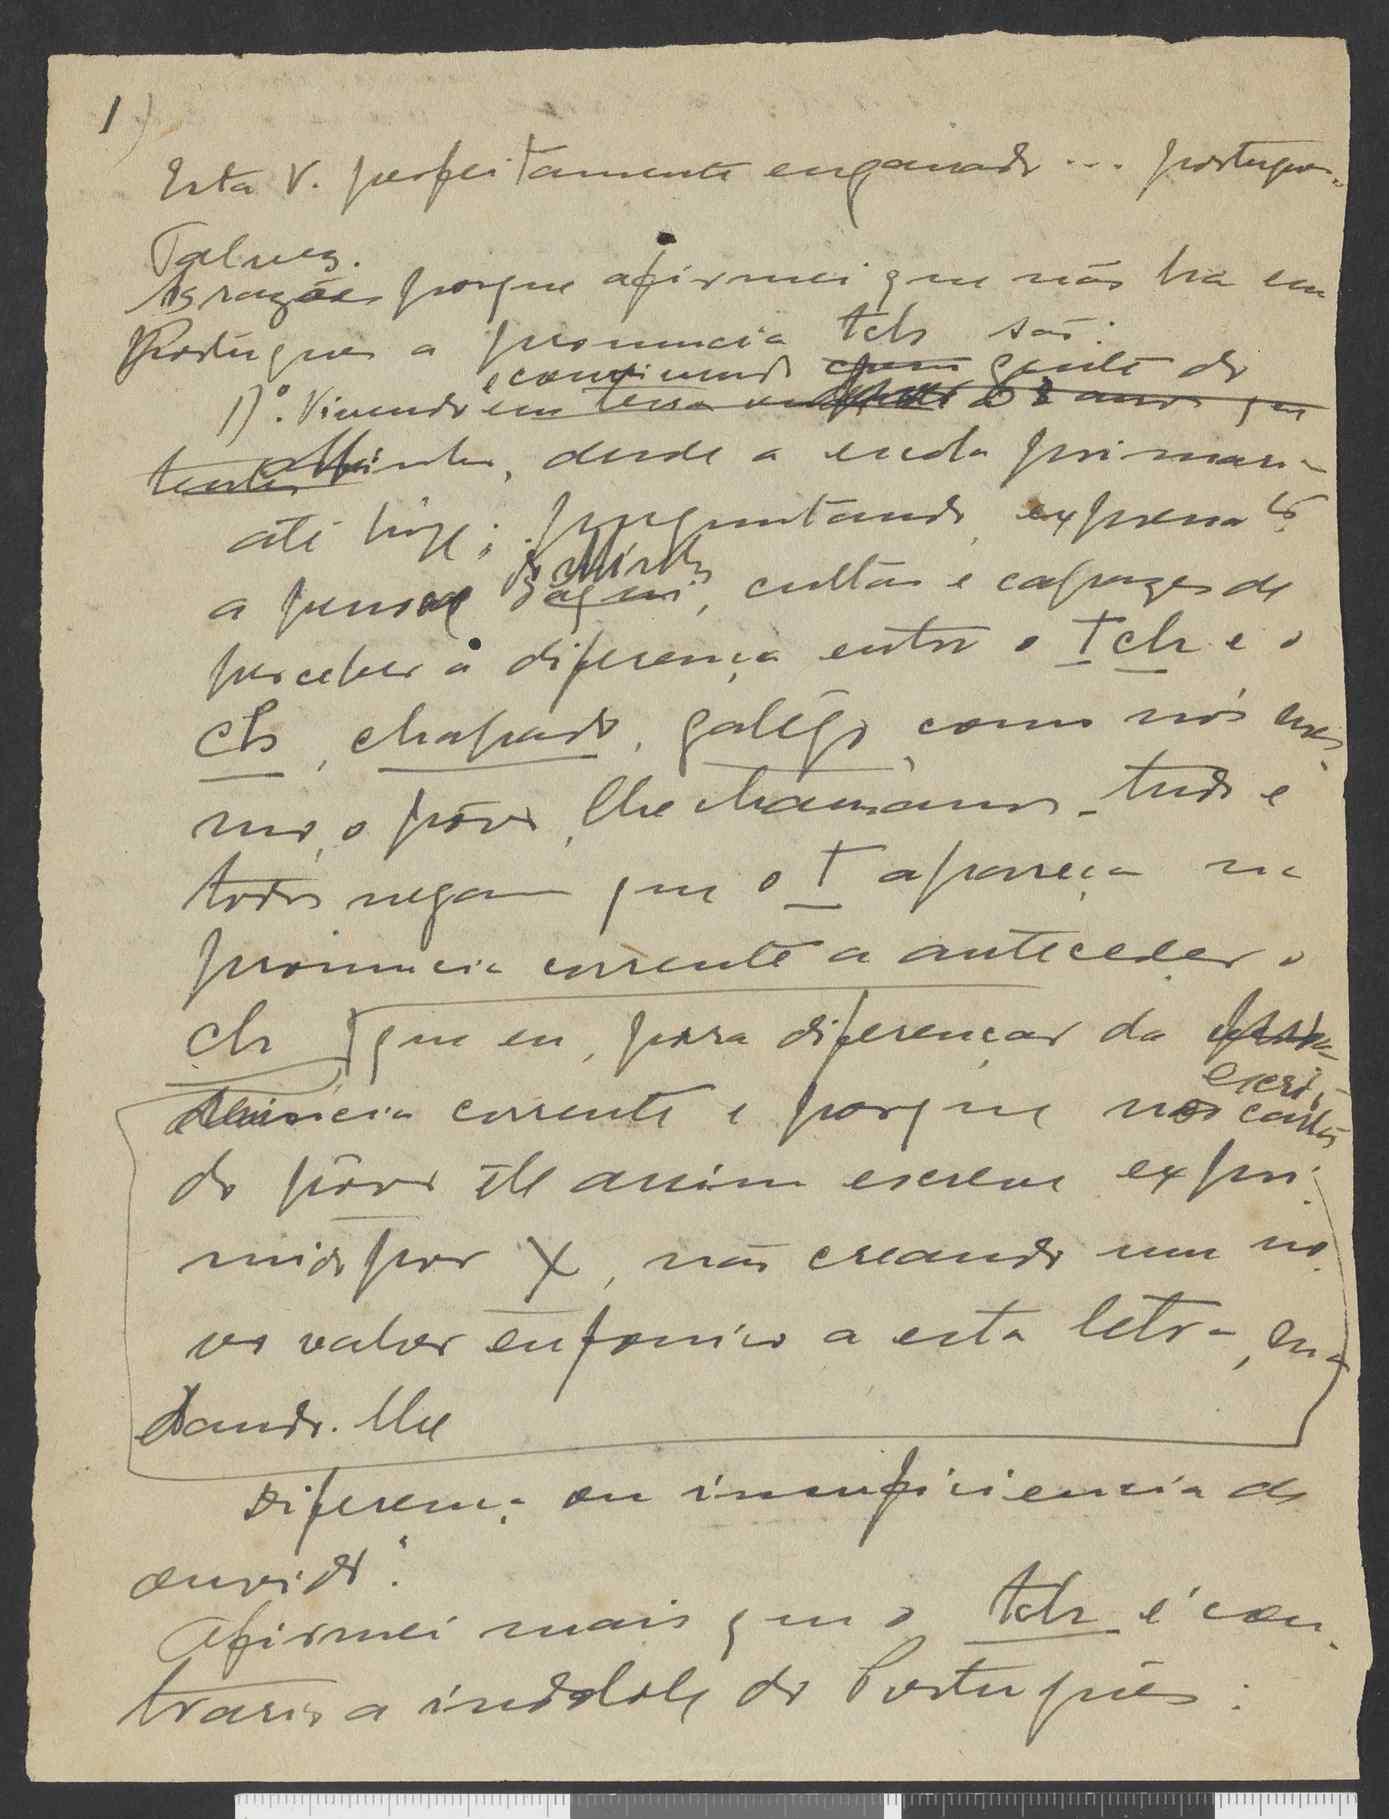 1)
Esta V. perfeitamente enganado ... portugues.
Talvez.
As razões porque afirmei que não ha em
Português a pronuncia tch são:
e convivendo com gente do
1)º. Vivendo em terra anos que
Minho, desde a escola primaria
até hoje; preguntando, expressa/
do Minho
a pensoas daqui, cultas e capazes de
perceber a diferença entre o tch e o
ch, chapado, galêgo, como nós mes-
mo, o pôvo, lhe chamamos - tudo e
todos negam que o t apareça na
pronuncia corrente a anteceder o
ch que eu, para diferençar da pro-
escri-
nuncia corrente e porque nos cartas
do pôvo êle assim escreve expri-
mido por X, não creando um no-
vo valor eufonico a esta letra,
dando-lhe
Diferença ou insuficiencia de
ouvido?
Afirmei mais que o tch é con-
trario a indole do Português: